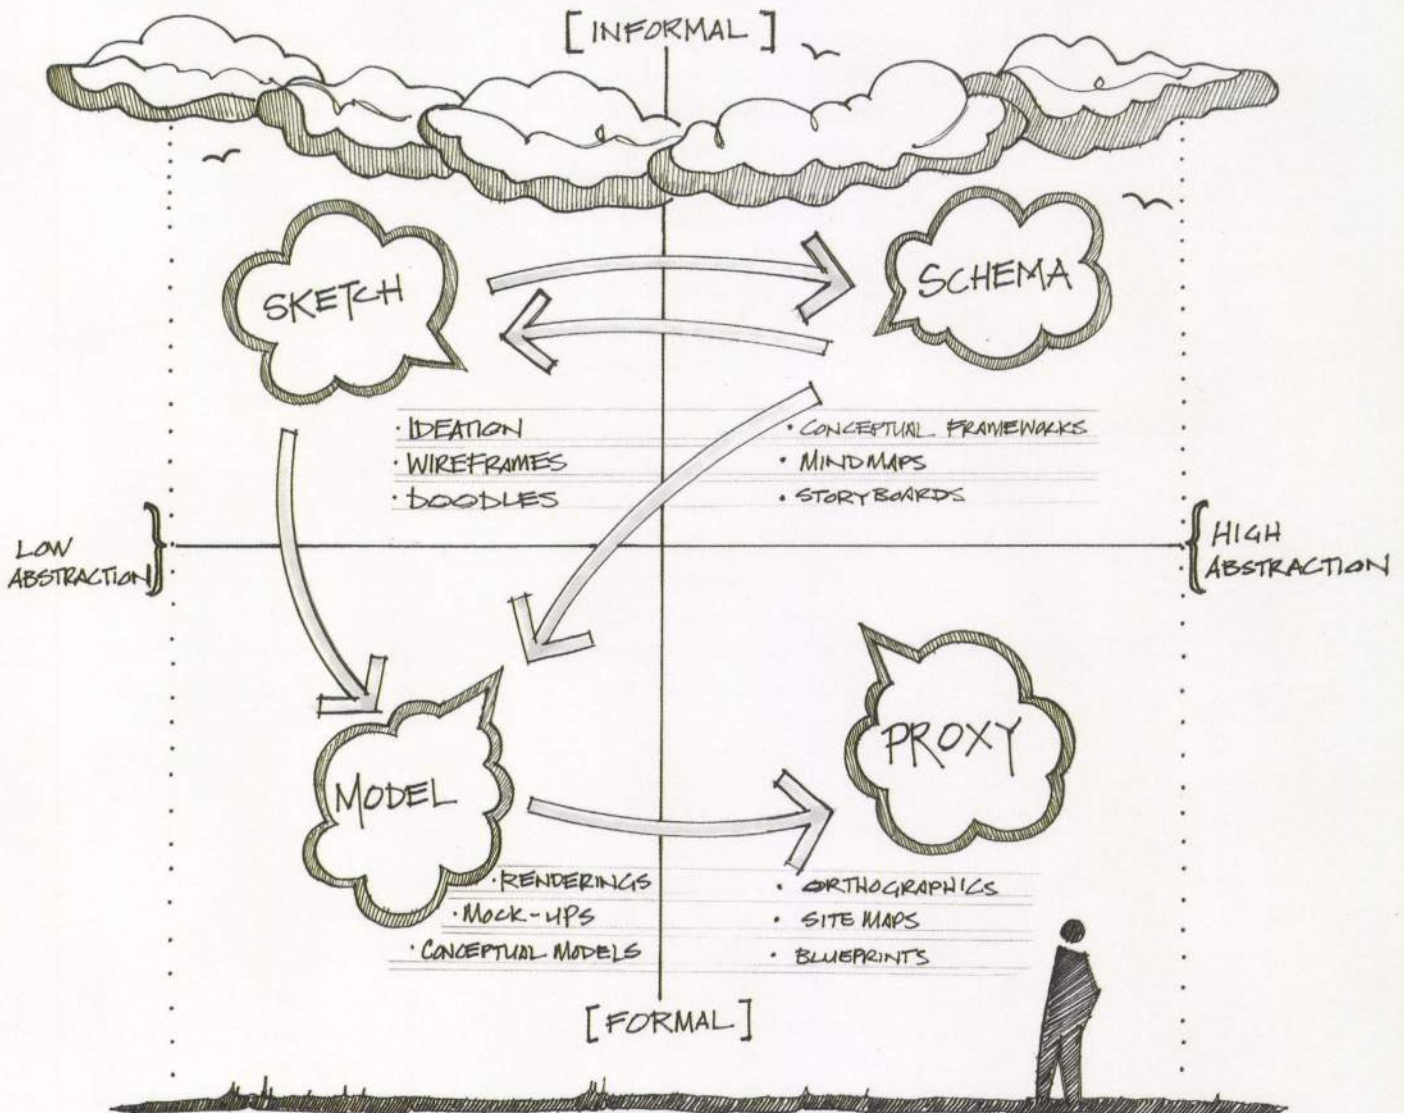 [INFORMAL]
SKETCH
SCHEMA
· IDEATION
· WIREFRAMES
· DOODLES
· CONCEPTUAL FRAMEWORKS
· MINDMAPS
· STORYBOARDS
LOW
ABSTRACTION
HIGH
ABSTRACTION
MODEL
PROXY
· RENDERINGS
· MOCK-UPS
· CONCEPTUAL MODELS
· ORTHOGRAPHICS
· SITE MAPS
· BLUEPRINTS
[FORMAL]